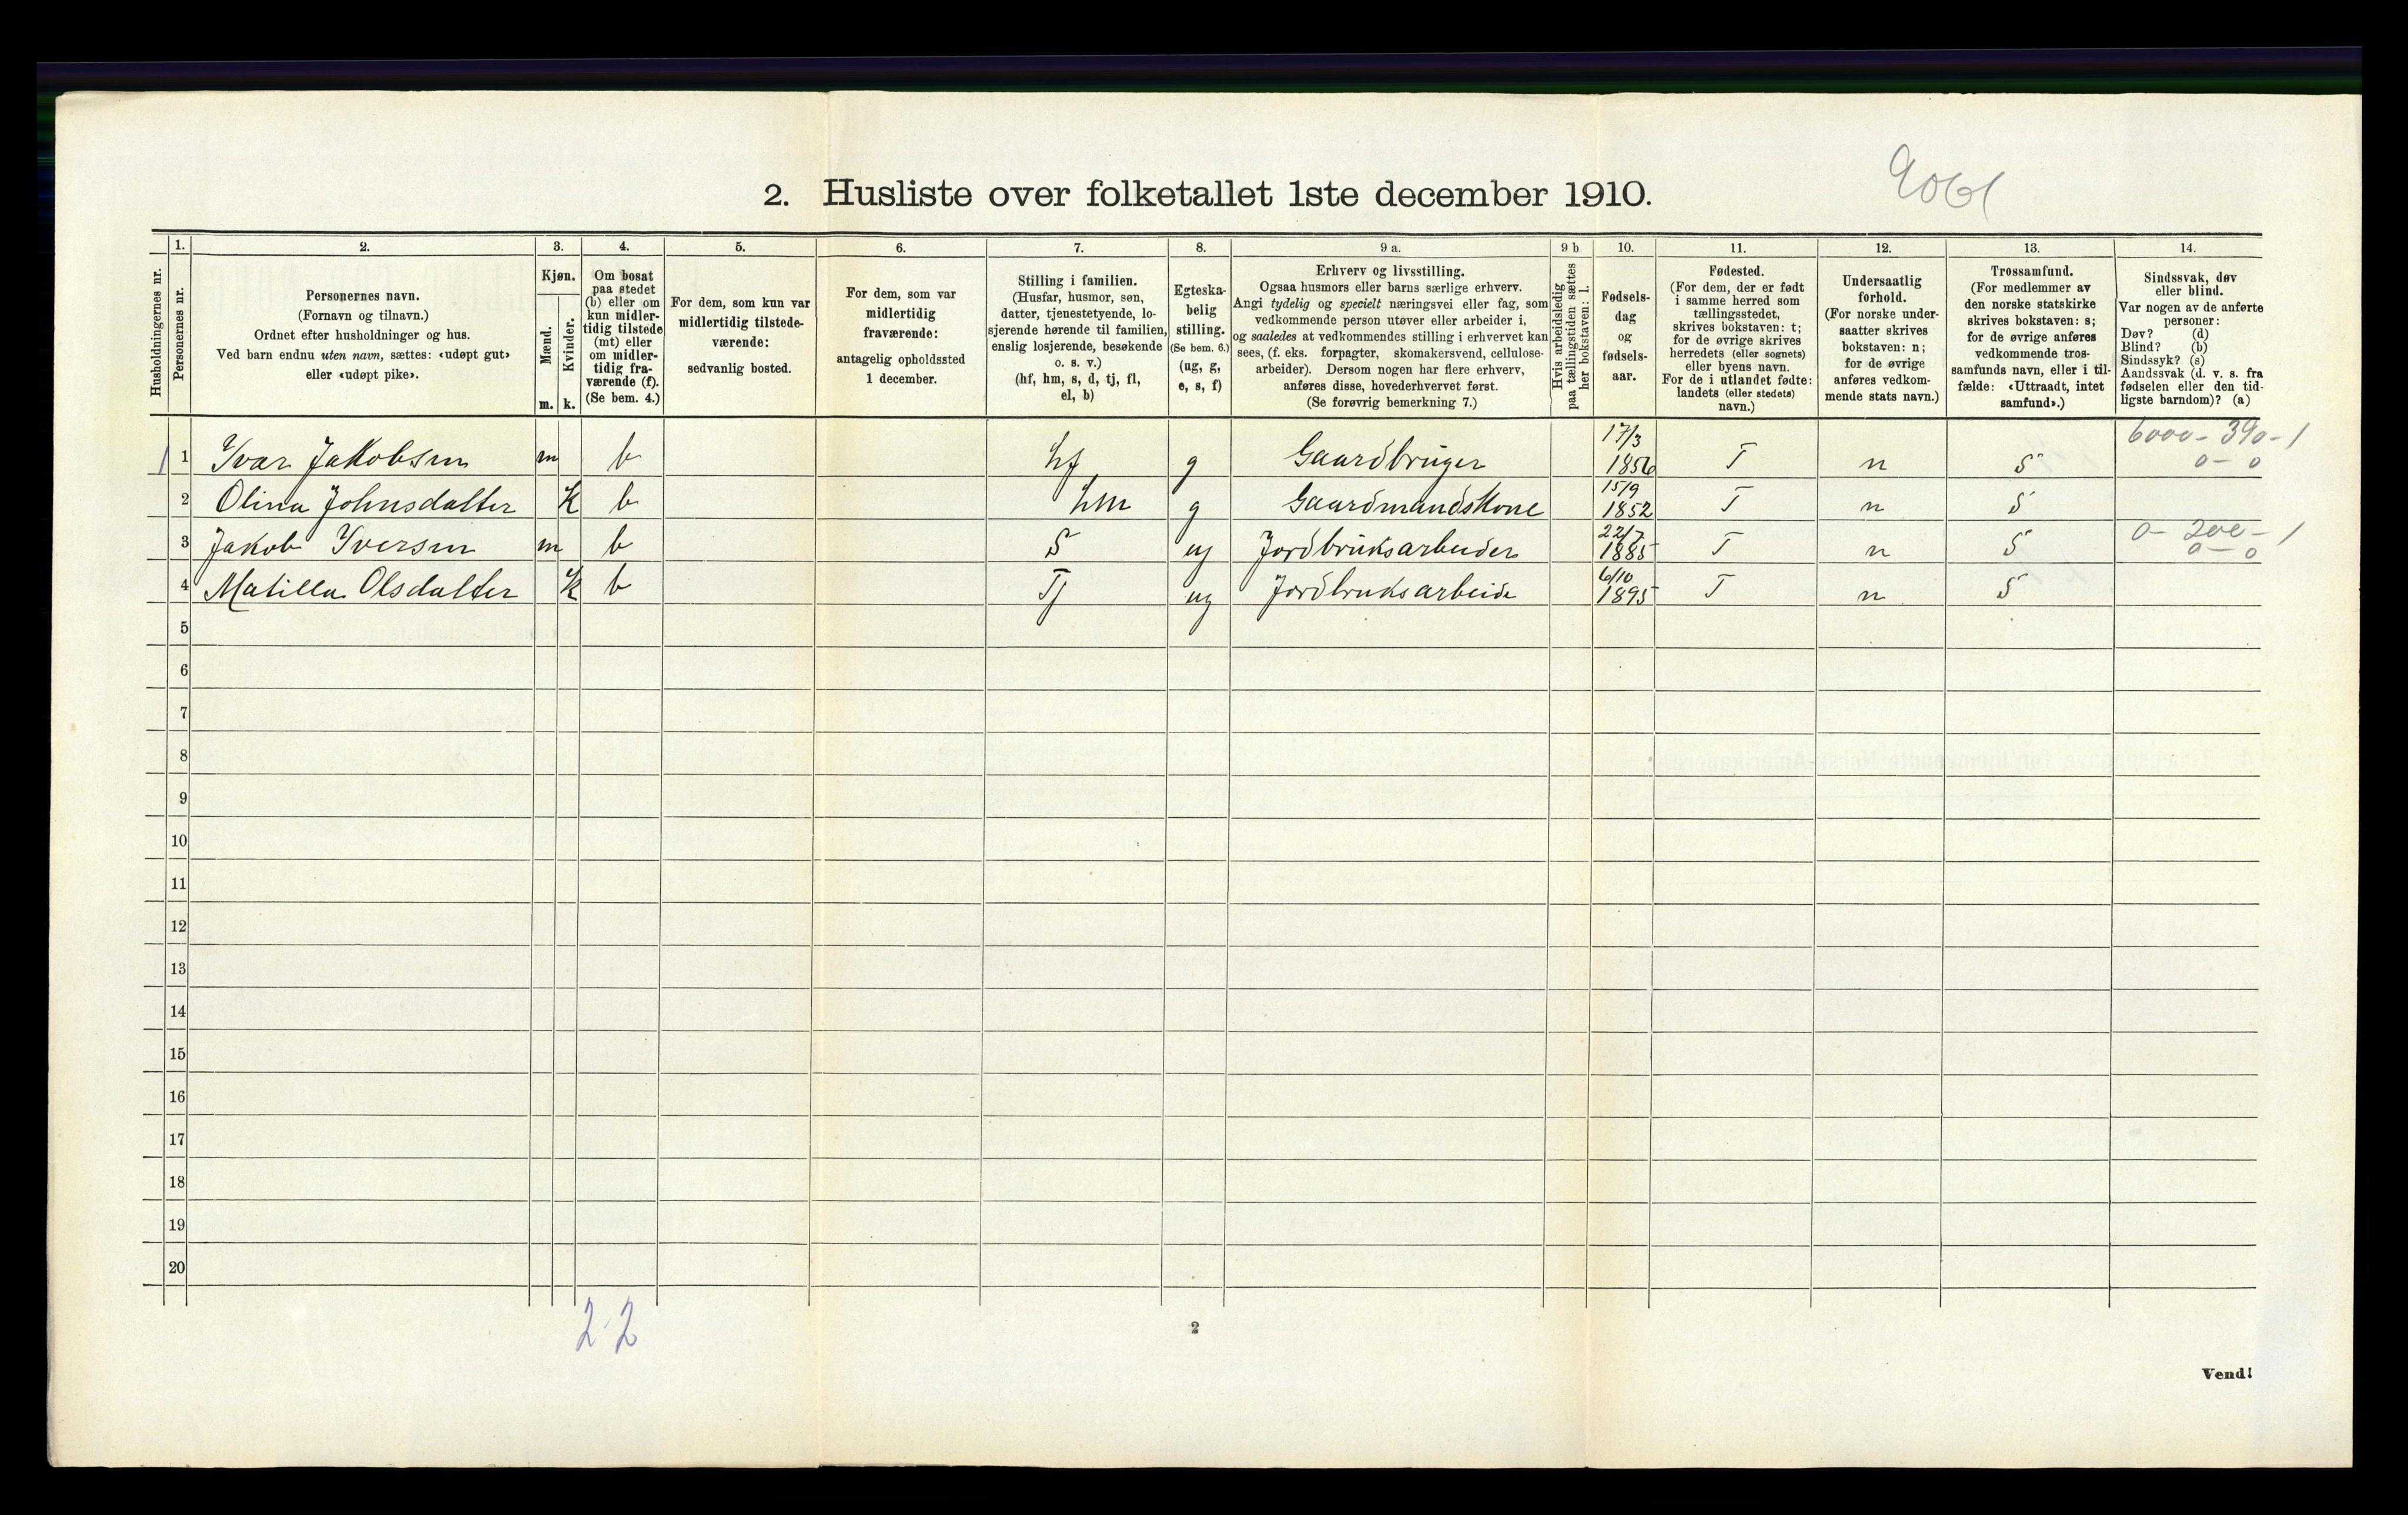 2. Husliste over folketallet 1ste december 1910.
1. 2. 3. 4. 5. 6. 7. 8. 9 a. 9 b 10. 11. 12. 13. 14.
Husholdningernes nr.
Personernes nr.
Personernes navn.
(Fornavn og tilnavn.)
Ordnet efter husholdninger og hus.
Ved barn endnu uten navn, sættes: «udøpt gut»
eller «udøpt pike».
Kjøn.
Mænd.
Kvinder.
m. k.
Om bosat
paa stedet
(b) eller om
kun midler-
tidig tilstede
(mt) eller
om midler-
tidig fra-
værende (f).
(Se bem. 4.)
For dem, som kun var
midlertidig tilstede-
værende:
sedvanlig bosted.
For dem, som var
midlertidig
fraværende:
antagelig opholdssted
1 december.
Stilling i familien.
(Husfar, husmor, søn,
datter, tjenestetyende, lo-
sjerende hørende til familien,
enslig losjerende, besøkende
o. s. v.)
(hf, hm, s, d, tj, fl,
el, b)
Egteska-
belig
stilling.
(Se bem. 6.)
(ug, g,
e, s, f)
Erhverv og livsstilling.
Ogsaa husmors eller barns særlige erhverv.
Angi tydelig og specielt næringsvei eller fag, som
vedkommende person utøver eller arbeider i,
og saaledes at vedkommendes stilling i erhvervet kan
sees, (f. eks. forpagter, skomakersvend, cellulose-
arbeider). Dersom nogen har flere erhverv,
anføres disse, hovederhvervet først.
(Se forøvrig bemerkning 7.)
Hvis arbeidsledig
paa tællingstiden sættes
her bokstaven: l.
Fødsels-
dag
og
fødsels-
aar.
Fødested.
(For dem, der er født
i samme herred som
tællingsstedet,
skrives bokstaven: t;
for de øvrige skrives
herredets (eller sognets)
eller byens navn.
For de i utlandet fødte:
landets (eller stedets)
navn.)
Undersaatlig
forhold.
(For norske under-
saatter skrives
bokstaven: n;
for de øvrige
anføres vedkom-
mende stats navn.)
Trossamfund.
(For medlemmer av
den norske statskirke
skrives bokstaven: s;
for de øvrige anføres
vedkommende tros-
samfunds navn, eller i til-
fælde: «Uttraadt, intet
samfund».)
Sindssvak, døv
eller blind.
Var nogen av de anførte
personer:
Døv? (d)
Blind? (b)
Sindssyk? (s)
Aandssvak (d. v. s. fra
fødselen eller den tid-
ligste barndom)? (a)
1 1 Yvar Jakobsen m b hf g Gaardbruger 17/3 1856 T n S 6000 - 390 - 1
0 - 0
2 Olina Johnsdatter k b hm g Gaardmandskone 15/9 1852 T n S
3 Jakob Yversen m b S ug Jordbruksarbeider 22/7 1885 T n S 0 - 200 - 1
0 - 0
4 Matilla Olsdatter k b Tj ug Jordbruksarbeide 6/10 1895 T n S
5
6
7
8
9
10
11
12
13
14
15
16
17
18
19
20
2 2
2
Vend!